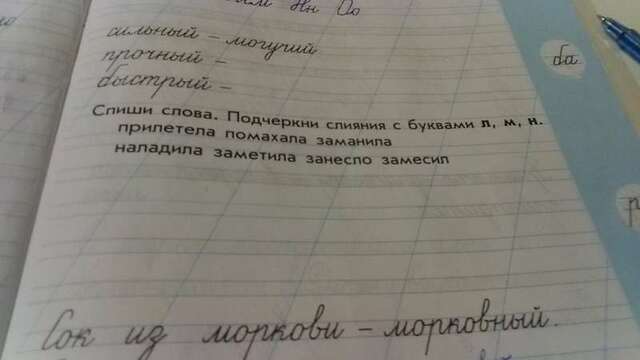 Нн Оо
сильный – могучий
прочный –
быстрый –
Спиши слова. Подчеркни слияния с буквами л, м, н.
прилетела помахала заманила
наладила заметила занесло замесил
ба
р
Сок из моркови – морковный.